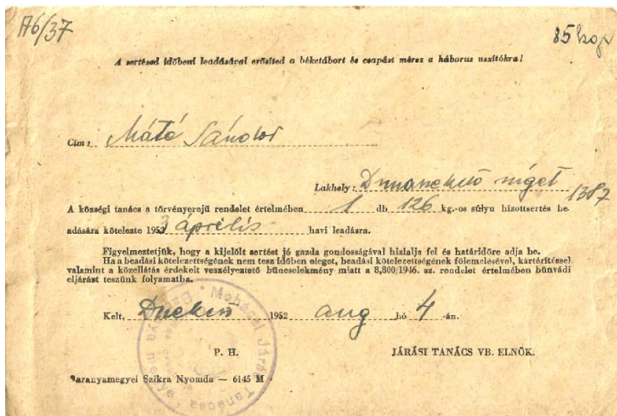 A6/37
85 kop
A sertésed időbeni leadásával erősíted a béketábort és csapást mérsz a háborus uszítókra!
Cim: Máté Sándor
Lakhely: Dunanekuő sziget 1387
A községi tanács a törvényerejű rendelet értelmében 1 db 126 kg.-os súlyu hizottsertés be-
adására kötelezte 1953 április havi leadásra.
Figyelmeztetjük, hogy a kijelölt sertést jó gazda gondosságával hizlalja fel és határidőre adja be.
Ha a beadási kötelezettségének nem tesz időben eleget, beadási kötelezettségének fölemelésével, kártérítéssel
valamint a közellátás érdekeit veszélyeztető bűncselekmény miatt a 8,800/1946. sz. rendelet értelmében bűnvádi
eljárást teszünk folyamatba.
Kelt, 1952 aug hó 4-án.
P. H. JÁRÁSI TANÁCS VB. ELNÖK.
Baranyamegyei Szikra Nyomda — 6145 M
Mohácsi Járási Tanácsa